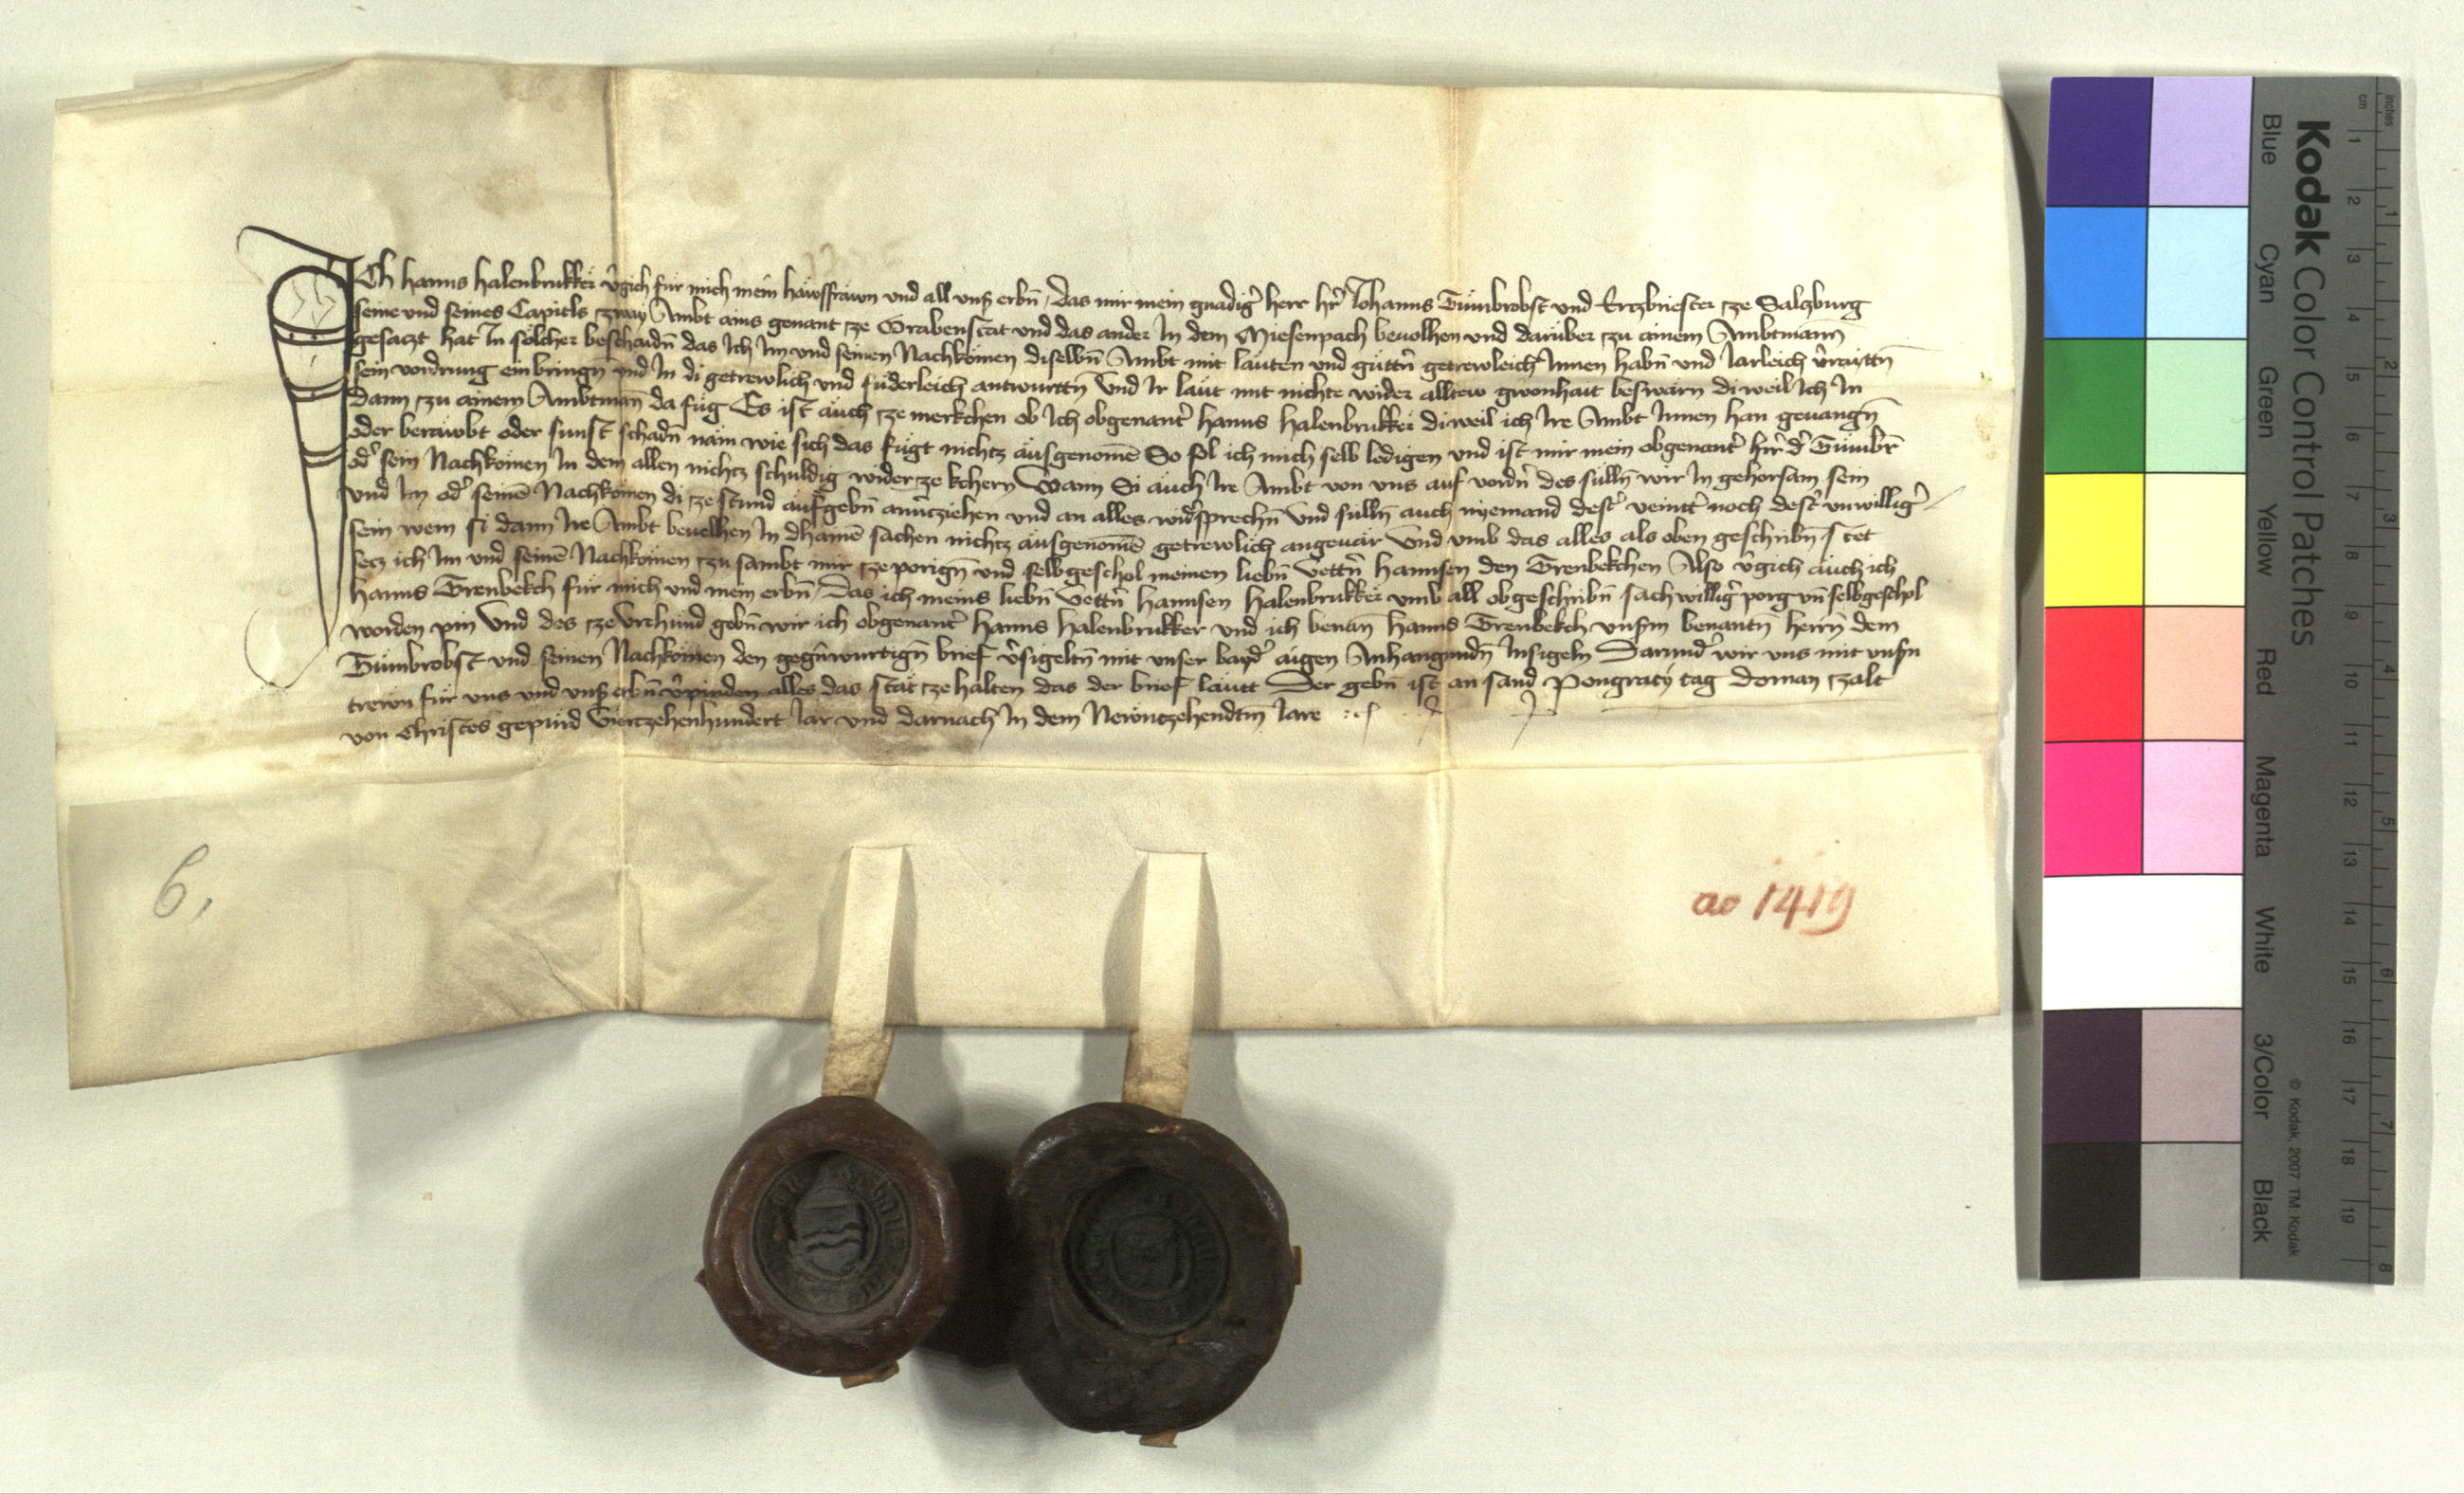 Ich hanns halenbrukker v̾gich für mich mein hawsfrawn und all vnß erbn̄ / das mir mein gnadig̾ herr hr̾ Johanns Tümbrobst und Ertzbriester cze Salczburg
seine und seines Capitls czway Ambt ains genant cze Grabenstat und das ander In dem Miesenpach beuolhen und darüber czu ainem Ambtmann
gesaczt hat In sölcher beschaidn̄ das Ich Im und seinen Nachkömen diselbn̄ Ambt mit läuten und güttn̾ getrewleich Innen habn̄ und Jarleich v̾raytt̄n
sein vordrung einbringn̄ und In di getrewlich und füderleich antwurttn̄ Und Ir läut mit nichte wider alltew gwonhait beswarn diweil Ich In
dann czu ainem Ambtman da füg Es ist auch cze merkchen ob Ich obgenant̾ hanns halenbrukker diweil ich Ire Ambt Innen han geuangn̄
oder berawbt oder sunst schadn̄ näm wie sich das fügt nichtz ausgenomē So sol ich mich selb ledigen und ist mir mein obgenant̾ hr̾ d̾ Tümbr̄
od̾ sein Nachkömen In dem allen nichtz schuldig wider ze kchern Wann Si auch Ire Ambt von uns auf vordn̾ des sülln̄ wir In gehorsam sein
und Im od̾ seinē Nachkömen di ze stund aufgebn̄ und an alles wid̾sprechn̄ Und sulln̄ auch nyemand dest̾ veintt̾ noch dest̾ vnwillig̾
sein wem si dann Ire Ambt beuelhen In dhainē sachen nichtz ausgenomē getrewlich angeuär Und vmb das alles als oben geschribn̄ stet
secz ich Im und seinē Nachkömen czu sambt mir cze porign̄ und selbgeschol meinen liebn̄ Vettn̾ hannsen den Trenbekchen Also v̾gich auch ich
hanns Trenbekch für mich und mein erbn̄ / Das ich meins liebn̄ Vettn̾ hannsen halenbrukker vmb all obgeschribn̄ sach willig̾ porg vn̄ selbgeschol
worden pin Und des cze Vrchünd gebn̄ wir ich obgenant̾ hanns halenbrukker und ich benan̄ hanns Trenbekch vnsm̄ benantn̄ herrn̄ dem
Tümbrobst und seinen Nachkömen den gegn̾wurtign̄ brief v̾sigeltn̄ mit unser bayd̾ aigen Anhangundn̄ Insigeln Darund̾ wir uns mit vnsn̄
trewn für uns und vnß erbn̄ v̾pinden alles das stät cze halten das der brief läutt Der gebn̄ ist an sand Pongraty tag Do man czalt
von Christes gepürd Viertzehenhundert Jar und darnach In dem Newntzehendtm̄ Jare
6,
ao 1419
Kodak Color Control Patches
Blue Cyan Green Yellow Red Magenta White 3/Color Black
© Kodak, 2007 TM: Kodak
inches 1 2 3 4 5 6 7 8
cm 1 2 3 4 5 6 7 8 9 10 11 12 13 14 15 16 17 18 19